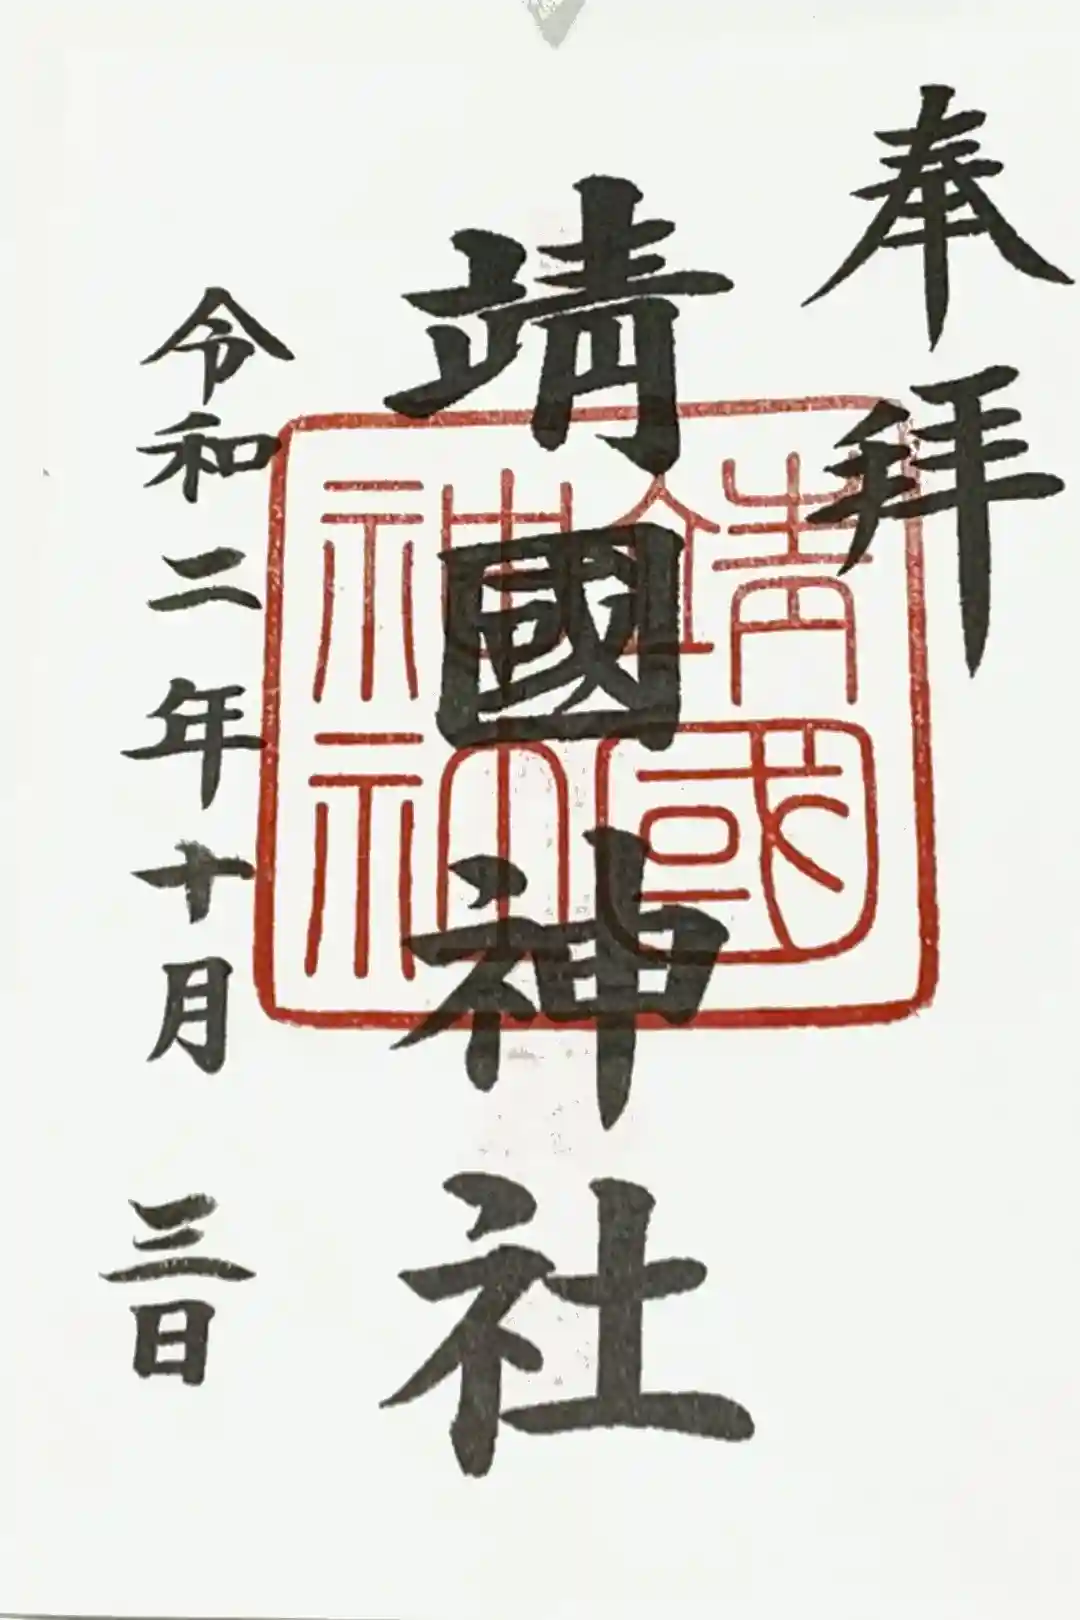 奉拜
靖國神社
令和二年十月三日
靖國神社